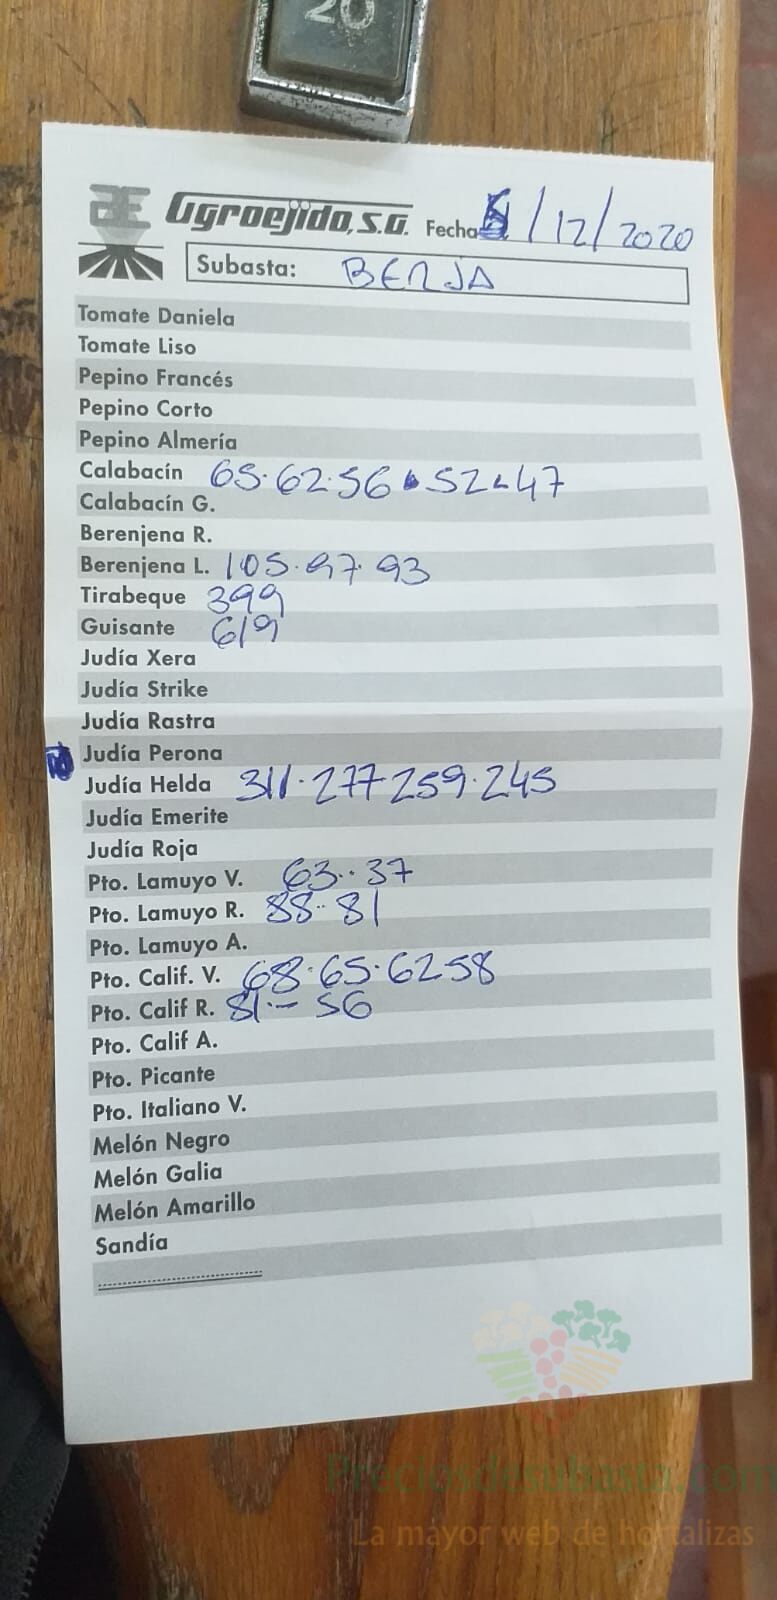 20
Agroejido, S.A. Fecha /12/2020
Subasta: BERJA
Tomate Daniela
Tomate Liso
Pepino Francés
Pepino Corto
Pepino Almería
Calabacín 65.62.56.52.47
Calabacín G.
Berenjena R.
Berenjena L. 105.97.93
Tirabeque 399
Guisante 619
Judía Xera
Judía Strike
Judía Rastra
Judía Perona
Judía Helda 311.277 259.245
Judía Emerite
Judía Roja
Pto. Lamuyo V. 63..37
Pto. Lamuyo R. 88..81
Pto. Lamuyo A.
Pto. Calif. V. 68.65.62 58
Pto. Calif R. 81.- 56
Pto. Calif A.
Pto. Picante
Pto. Italiano V.
Melón Negro
Melón Galia
Melón Amarillo
Sandía
Preciosdesubasta.com
La mayor web de hortalizas